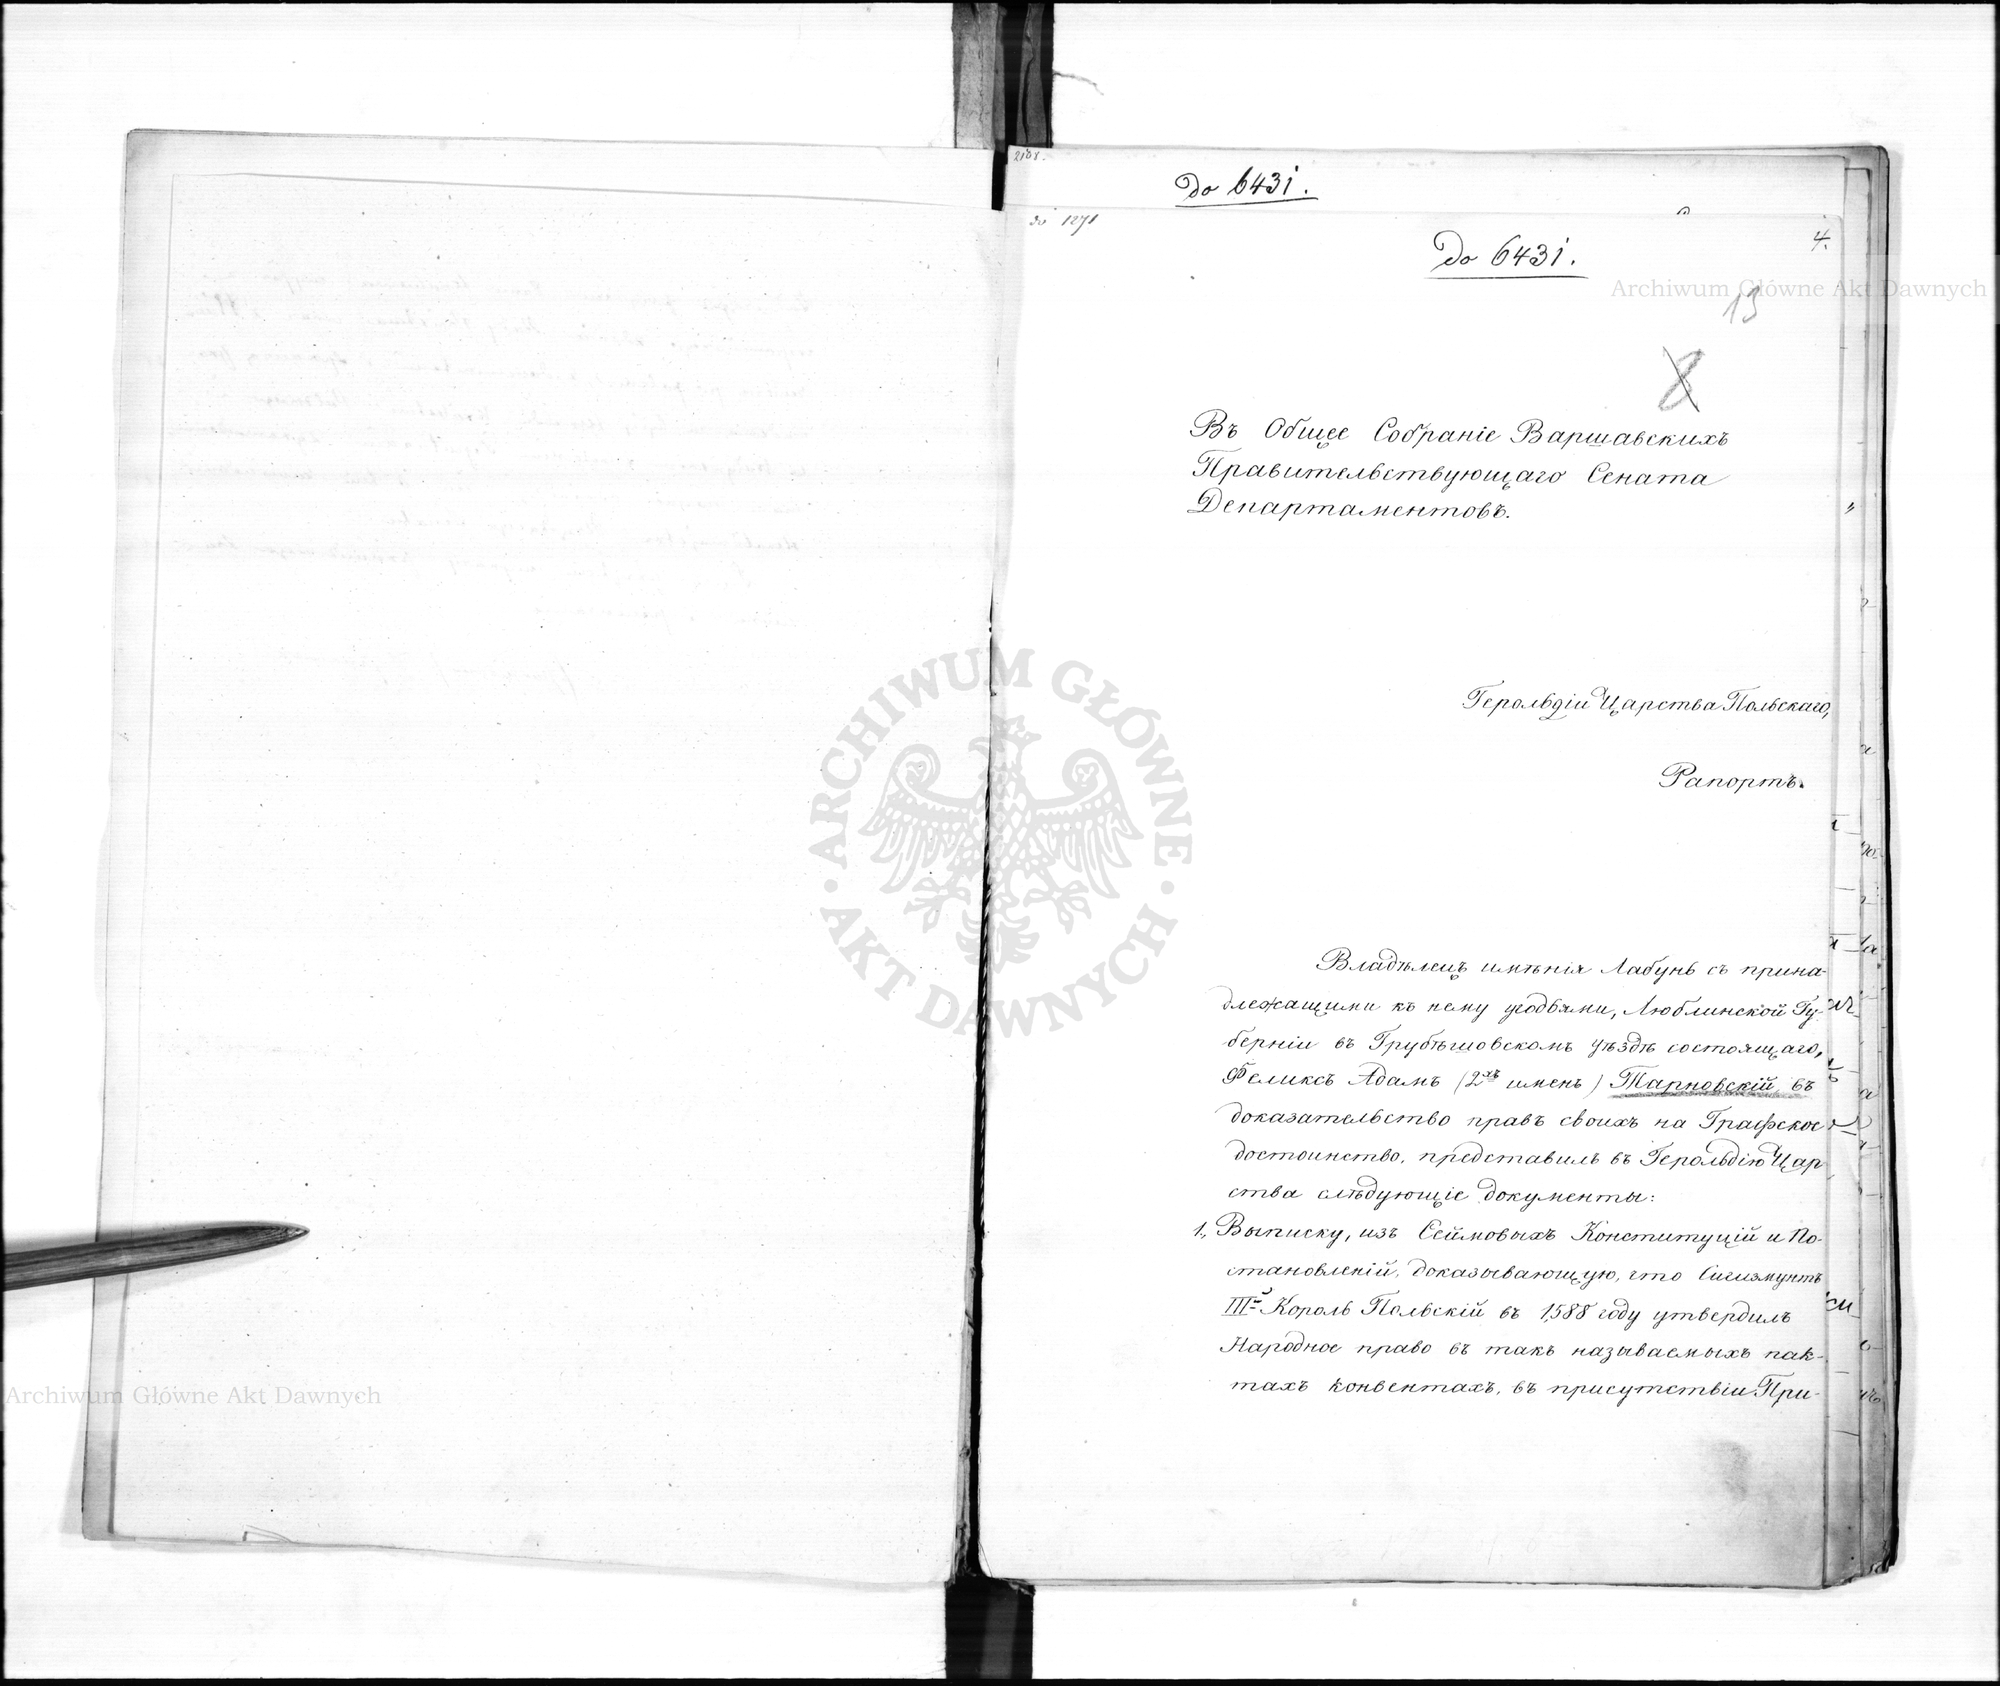 2108.
до 6431.
до 1271
4.
до 6431.
13
8
Въ Общее Собраніе Варшавскихъ
Правительствующаго Сената
Департаментовъ.
Герольдіи Царства Польскаго,
Рапортъ.
Владѣлецъ имѣнія Лабунь съ прина-
длежащими къ нему угодьями, Люблинской Гу-
берніи въ Грубѣшовскомъ уѣздѣ состоящаго,
Феликсъ Адамъ (2хъ именъ) Тарновскій, въ
доказательство правъ своихъ на Графское
достоинство, представилъ въ Герольдію Цар
ства слѣдующіе документы:
1., Выписку, изъ Сеймовыхъ Конституцій и По-
становленій, доказывающую, что Сигизмунтъ
IIIй Король Польскій въ 1588 году утвердилъ
Народное право въ такъ называемыхъ пак-
тахъ конвентахъ, въ присутствіи При-
ARCHIWUM GŁÓWNE
AKT DAWNYCH
Archiwum Główne Akt Dawnych
Archiwum Główne Akt Dawnych